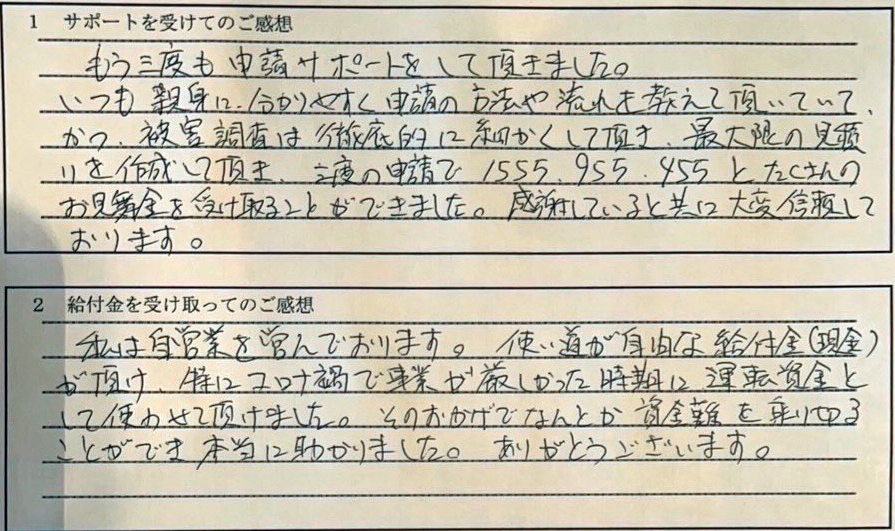 1 サポートを受けてのご感想
もう三度も申請サポートをして頂きました。
いつも親身に、分かりやすく申請の方法や流れを教えて頂いていて、
かつ、被害調査は徹底的に細かくして頂き、最大限の見積
りを作成して頂き、三度の申請で1555.955.455とたくさんの
お見舞金を受け取ることができました。感謝していると共に大変信頼して
おります。
2 給付金を受け取ってのご感想
私は自営業を営んでおります。使い道が自由な給付金(現金)
が頂け、特にコロナ禍で事業が厳しかった時期に運転資金と
して使わせて頂けました。そのおかげでなんとか資金難を乗り切る
ことができ本当に助かりました。ありがとうございます。